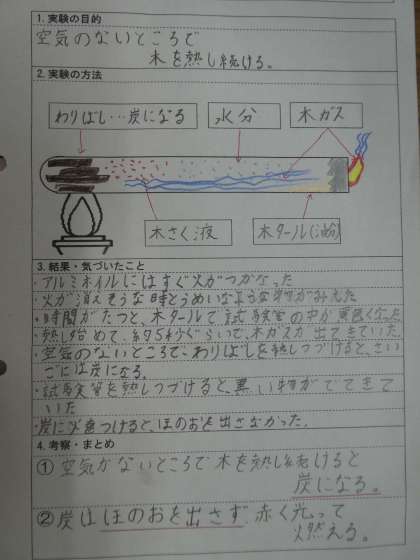 1. 実験の目的
空気のないところで
木を熱し続ける。
2. 実験の方法
わりばし…炭になる
水分
木ガス
木さく液
木タール(油)
3. 結果・気づいたこと
・アルミホイルにはすぐ火がつかなった
・火が消えそうな時とうめいなような物がみえた
・時間がたつと、木タールで試験管の中が黒くなった
・熱し始めて、約5秒ぐらいで、木ガスが出てきていた
・空気のないところで、わりばしを熱しつづけると、さい
ごには炭になる。
・試験管を熱しつづけると、黒い物がでてきて
いた
・炭に火をつけると、ほのおを出さなかった。
4. 考察・まとめ
① 空気がないところで木を熱し続けると
炭になる。
② 炭はほのおを出さず赤く光って
燃える。